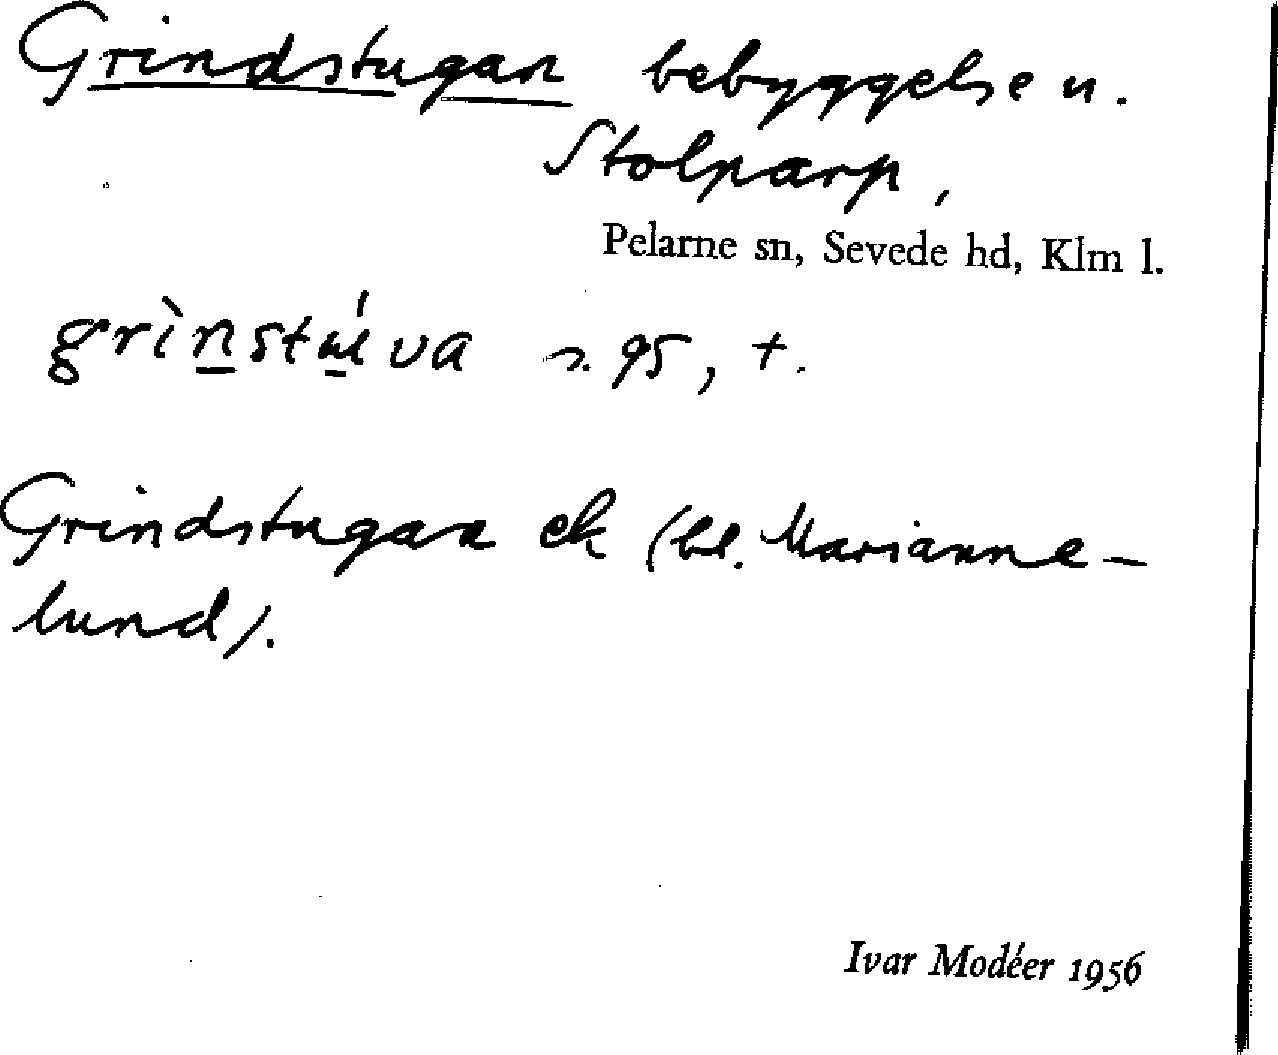 Grindstugan bebyggelse u.
Stolparp,
Pelarne sn, Sevede hd, Klm l.
grìnstúva s. 95, +.
Grindstugan ek (bl. Marianne-
lund).
Ivar Modéer 1956